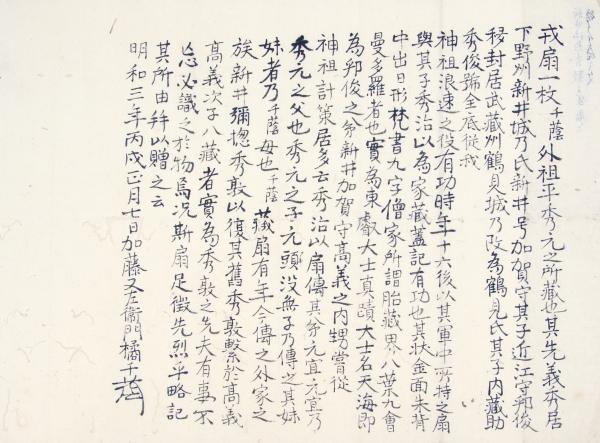 戎扇一枚千蔭外祖平秀元之所藏也其先義本居
下野州新井城乃氏新井号加賀守其子近江守邦俊
移封居武藏州鶴見城乃改為鶴見氏其子内藏助
秀俊號全底從我
神祖浪速之役有功時年十六後以其軍中所持之扇
與其子秀治以為家藏蓋記有功也其状金面朱背
中出日形梵書九字僧家所謂胎藏界八葉九會
曼多羅者也實為東叡大士真蹟大士名天海即
為邦俊之弟新井加賀守高義之内甥嘗從
神祖計策居多云秀治以扇傳其弟元宜元宜乃
秀元之父也秀元之子元頭没無子乃傳之其妹
妹者乃千蔭母也千蔭藏扇有年今傳之外家之
族新井彌惣秀敦以復其舊秀敦繋於高義
高義次子八藏者實為秀敦之先夫有事不
忘必識之於物焉况斯扇足徴先烈乎略記
其所由并以贈之云
明和三年丙戌正月七日加藤又左衛門橘千蔭